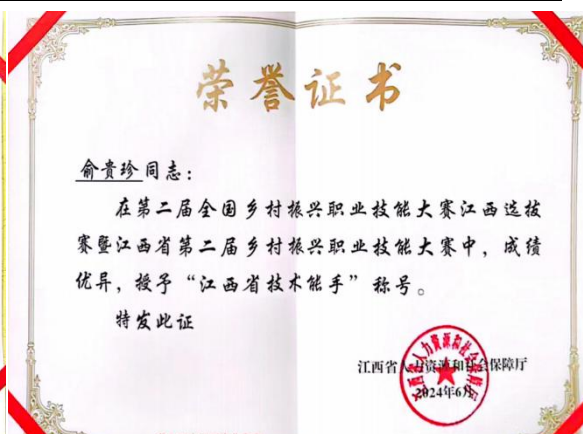 荣誉证书
俞贵珍同志：
在第二届全国乡村振兴职业技能大赛江西选拔
赛暨江西省第二届乡村振兴职业技能大赛中，成绩
优异，授予“江西省技术能手”称号。
特发此证
江西省人力资源和社会保障厅
2024年6月
江西省人力资源和社会保障厅